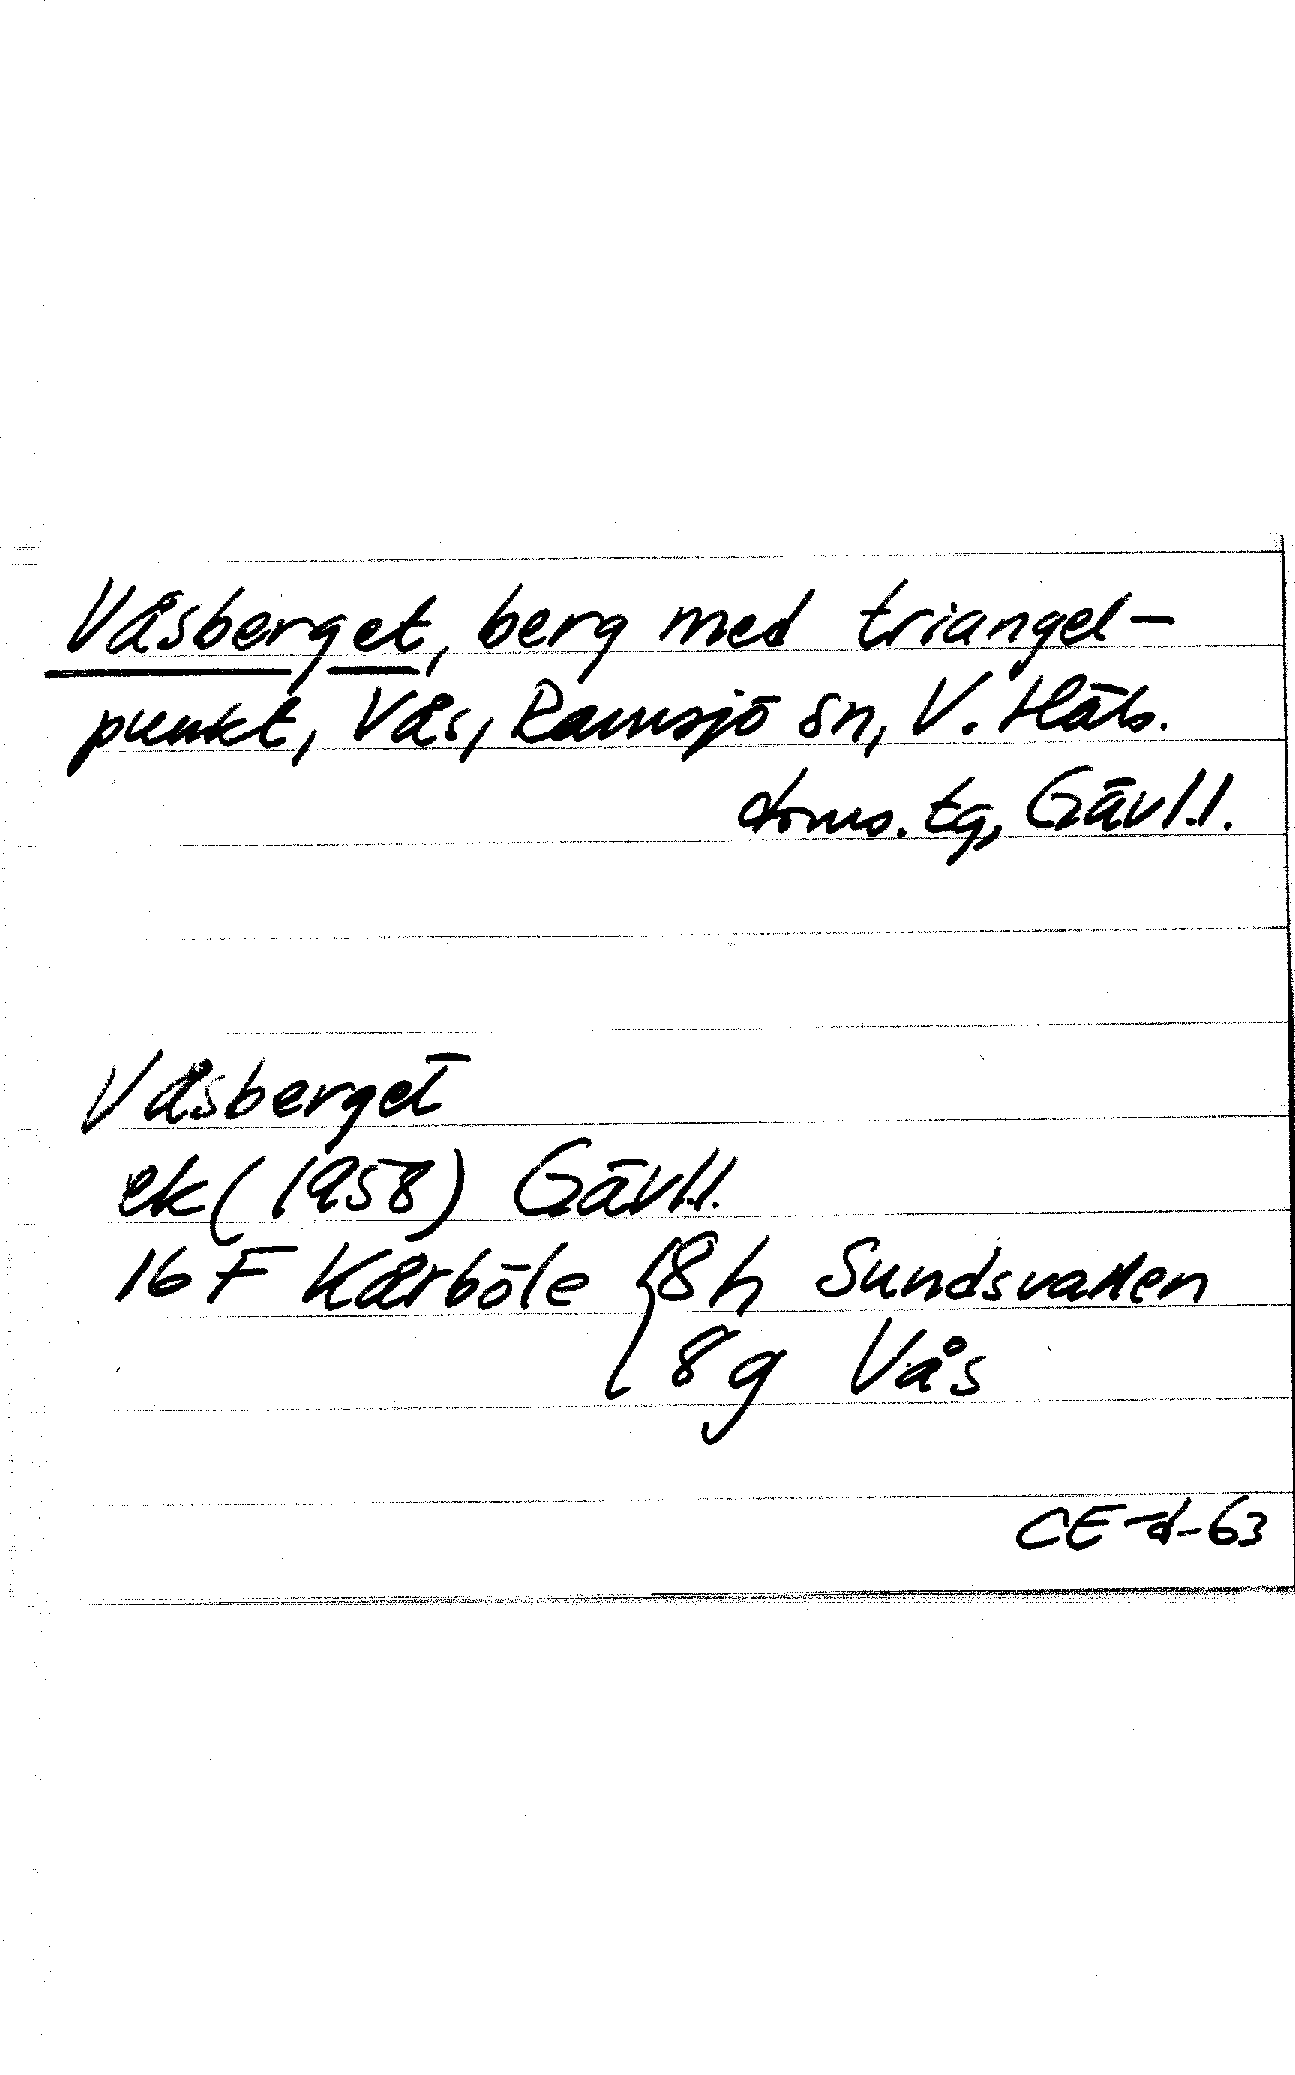 Våsberget, berg med triangel-
punkt, Vås, Ramsjö sn, V. Häls.
doms. tg, Gävl.l.
Våsberget
ek (1958) Gävl.l.
16 F Kårböle { 8h Sundsvallen
8g Vås
CE-d-63